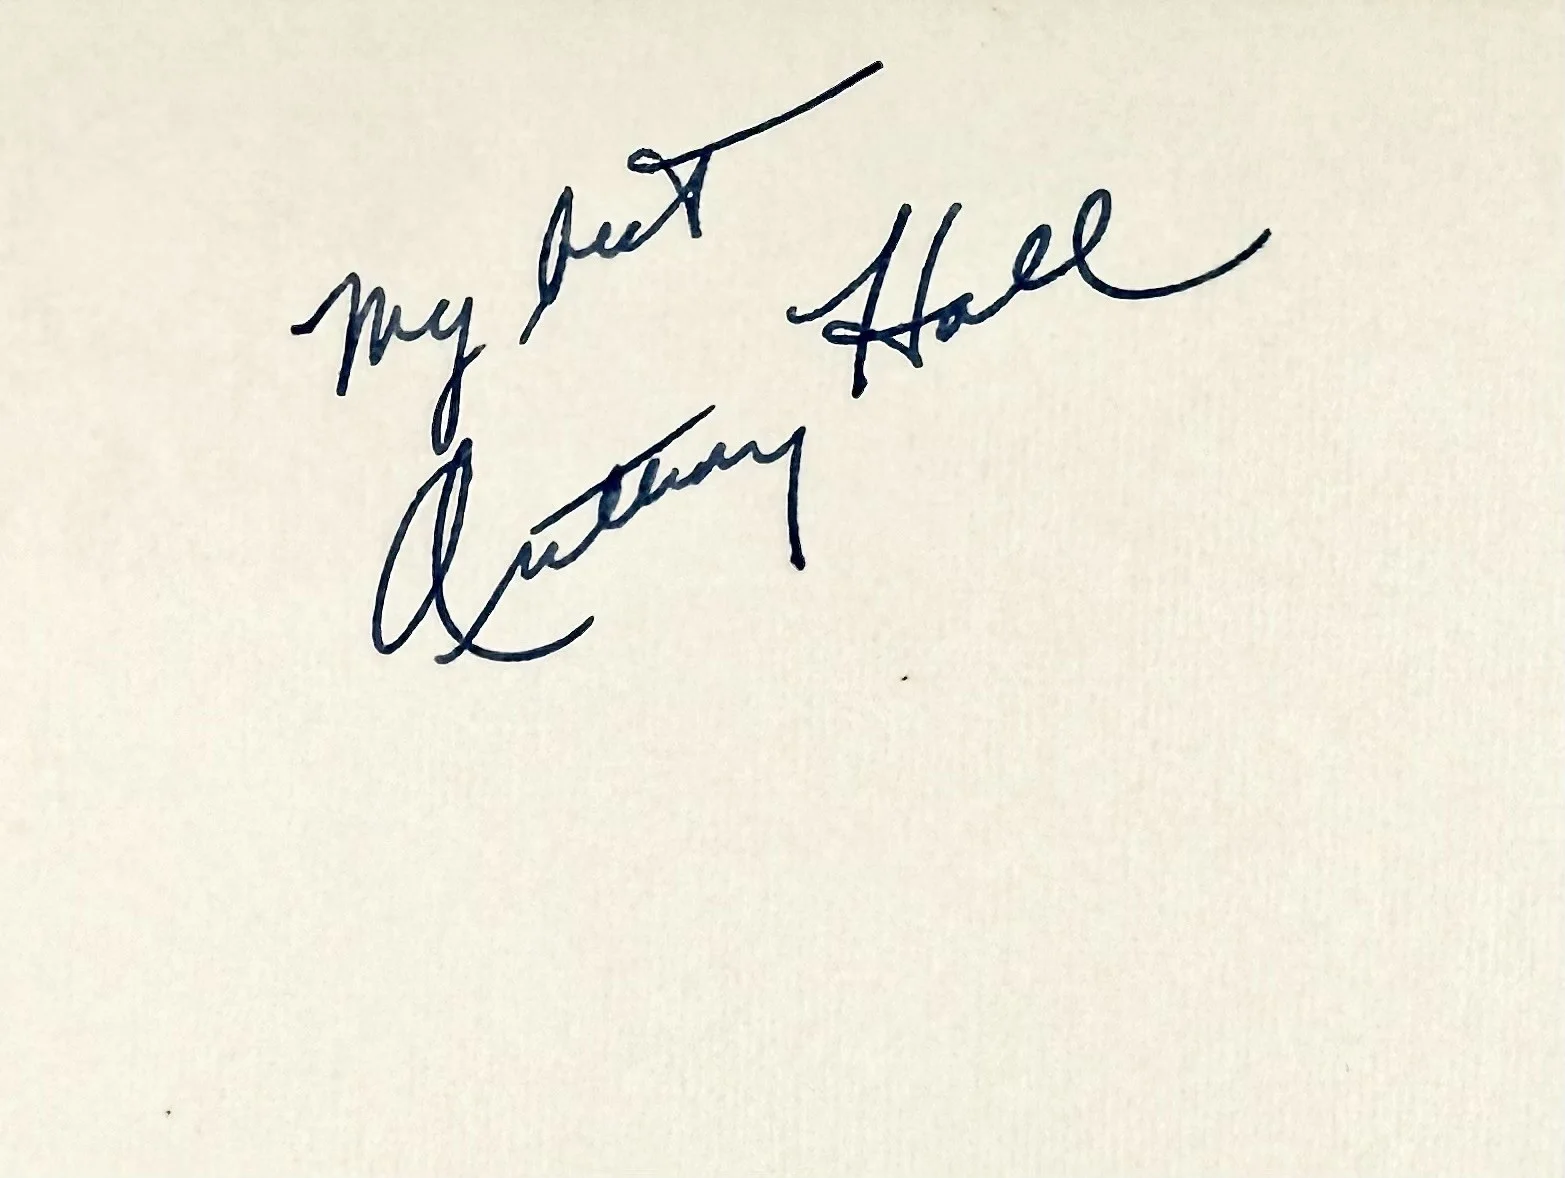 My best
Anthony Hall